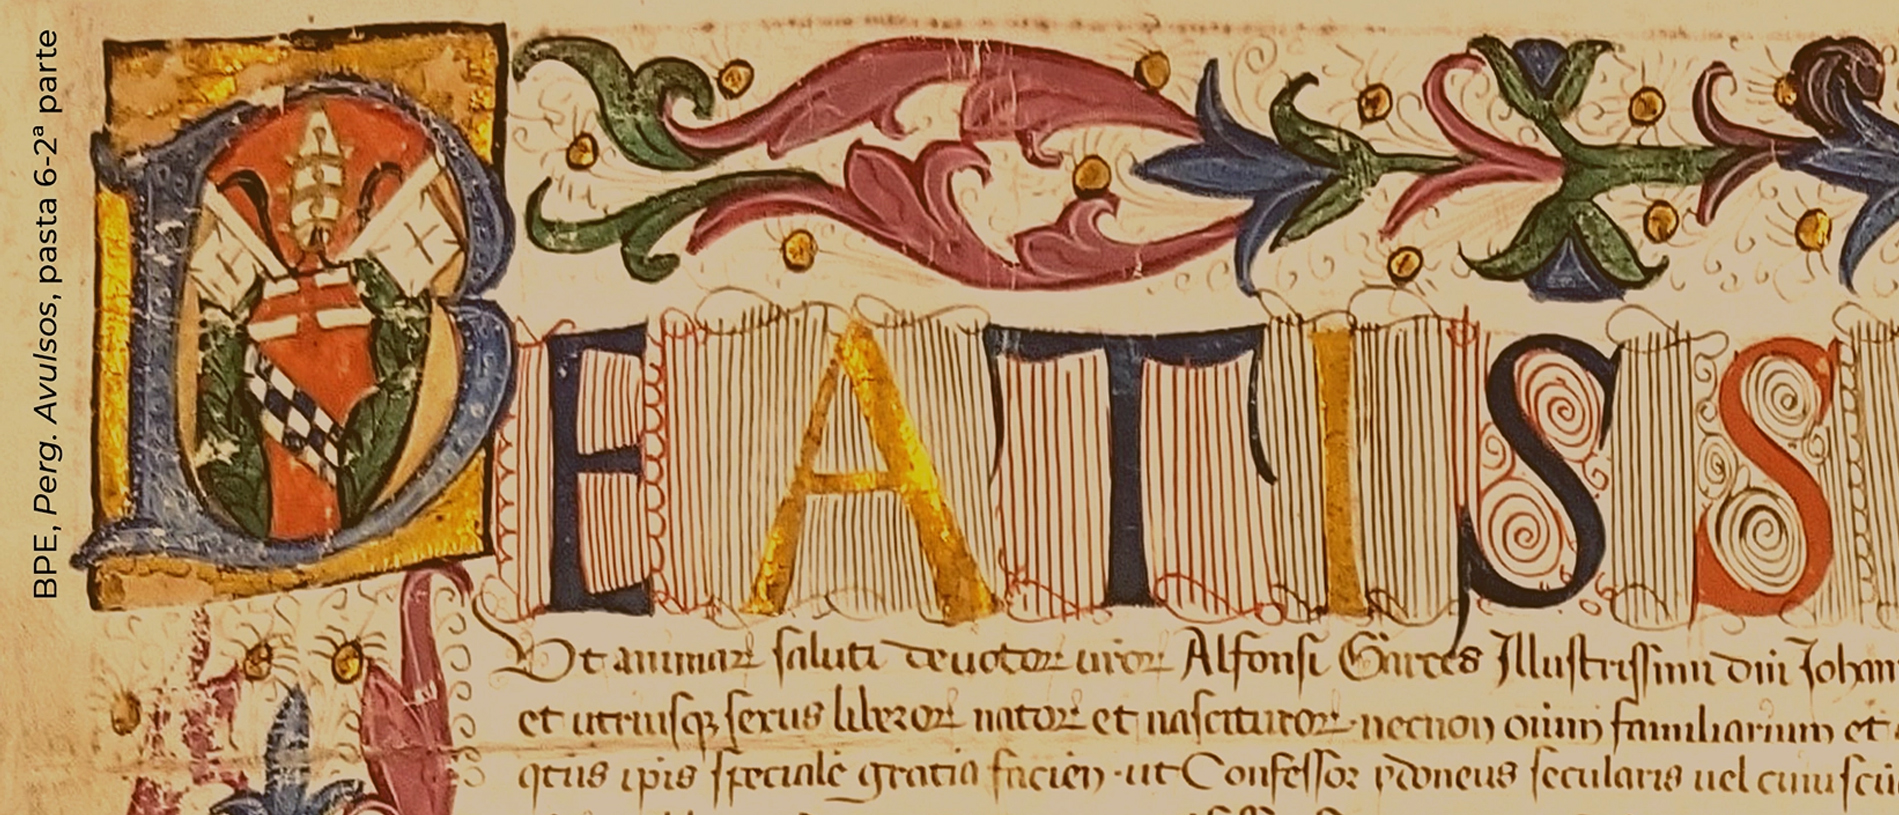 BPE, Perg. Avulsos, pasta 6-2ª parte
BEATISS
Ut animarꝝ saluti deuotorꝝ uirorꝝ Alfonsi Garces Illustrissimi dm̄ Johan
et utriusqꝫ sexus liberorꝝ natorꝝ et nasciturorꝝ necnon om̄iū familiarium et
ip̄is speciale gratiā facien̄ · ut Confessor ydoneus secularis uel